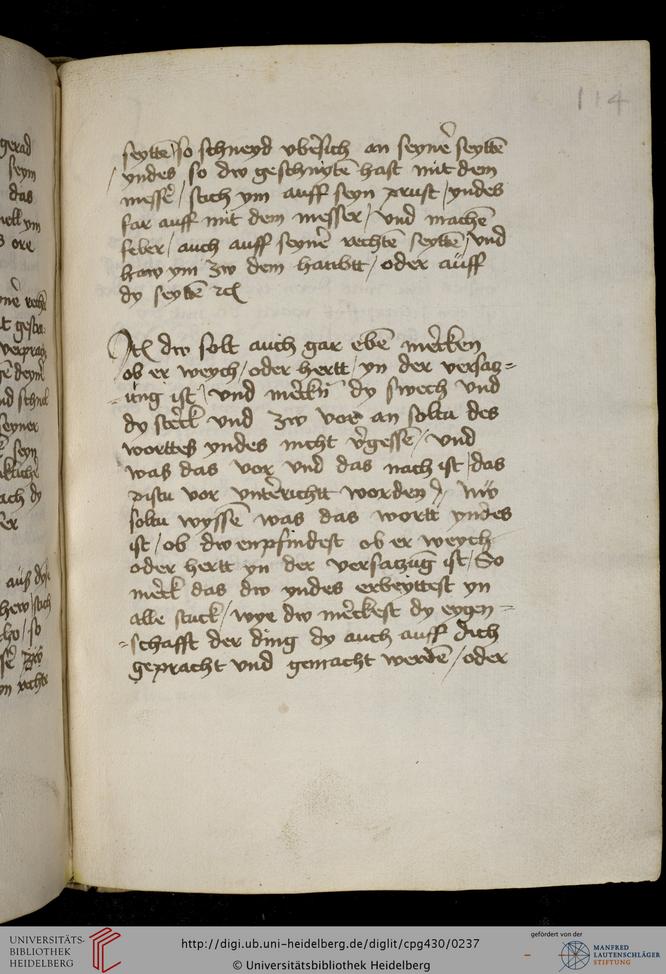 114
seytte / so schneyd vbersich an seyner seytte
/ yndes so dw geschnytē hast mit dem
messer / stich ym auff seyn prust / yndes
far auff mit dem messer / vnd machē
feler / auch auff seyner rechtē seyttē / vnd
haw ym zw dem hawbtt / oder auff
dy seyttē etc
Itē dw solt auch gar ebē mercken
ob er weych / oder hertt / yn der versatz=
=ūng ist / vnd merckn dy swech vnd
dy sterck vnd zw vor an soltu des
worttes yndes nicht vergessē / vnd
was das vor vnd das nach ist / das
pistu vor vnterrichtt worden / nw
soltu wyssē was das wortt yndes
ist / ob dw enpfindest ob er weych
oder hertt yn der versatzūg ist / So
merck das dw yndes erbeyttest yn
alle stuck / wye dw merckest dy eygen=
=schafft der ding dy auch auff dich
gepracht vnd gemacht werdē / oder
UNIVERSITÄTS-
BIBLIOTHEK
HEIDELBERG
http://digi.ub.uni-heidelberg.de/diglit/cpg430/0237
© Universitätsbibliothek Heidelberg
gefördert von der
MANFRED
LAUTENSCHLÄGER
STIFTUNG